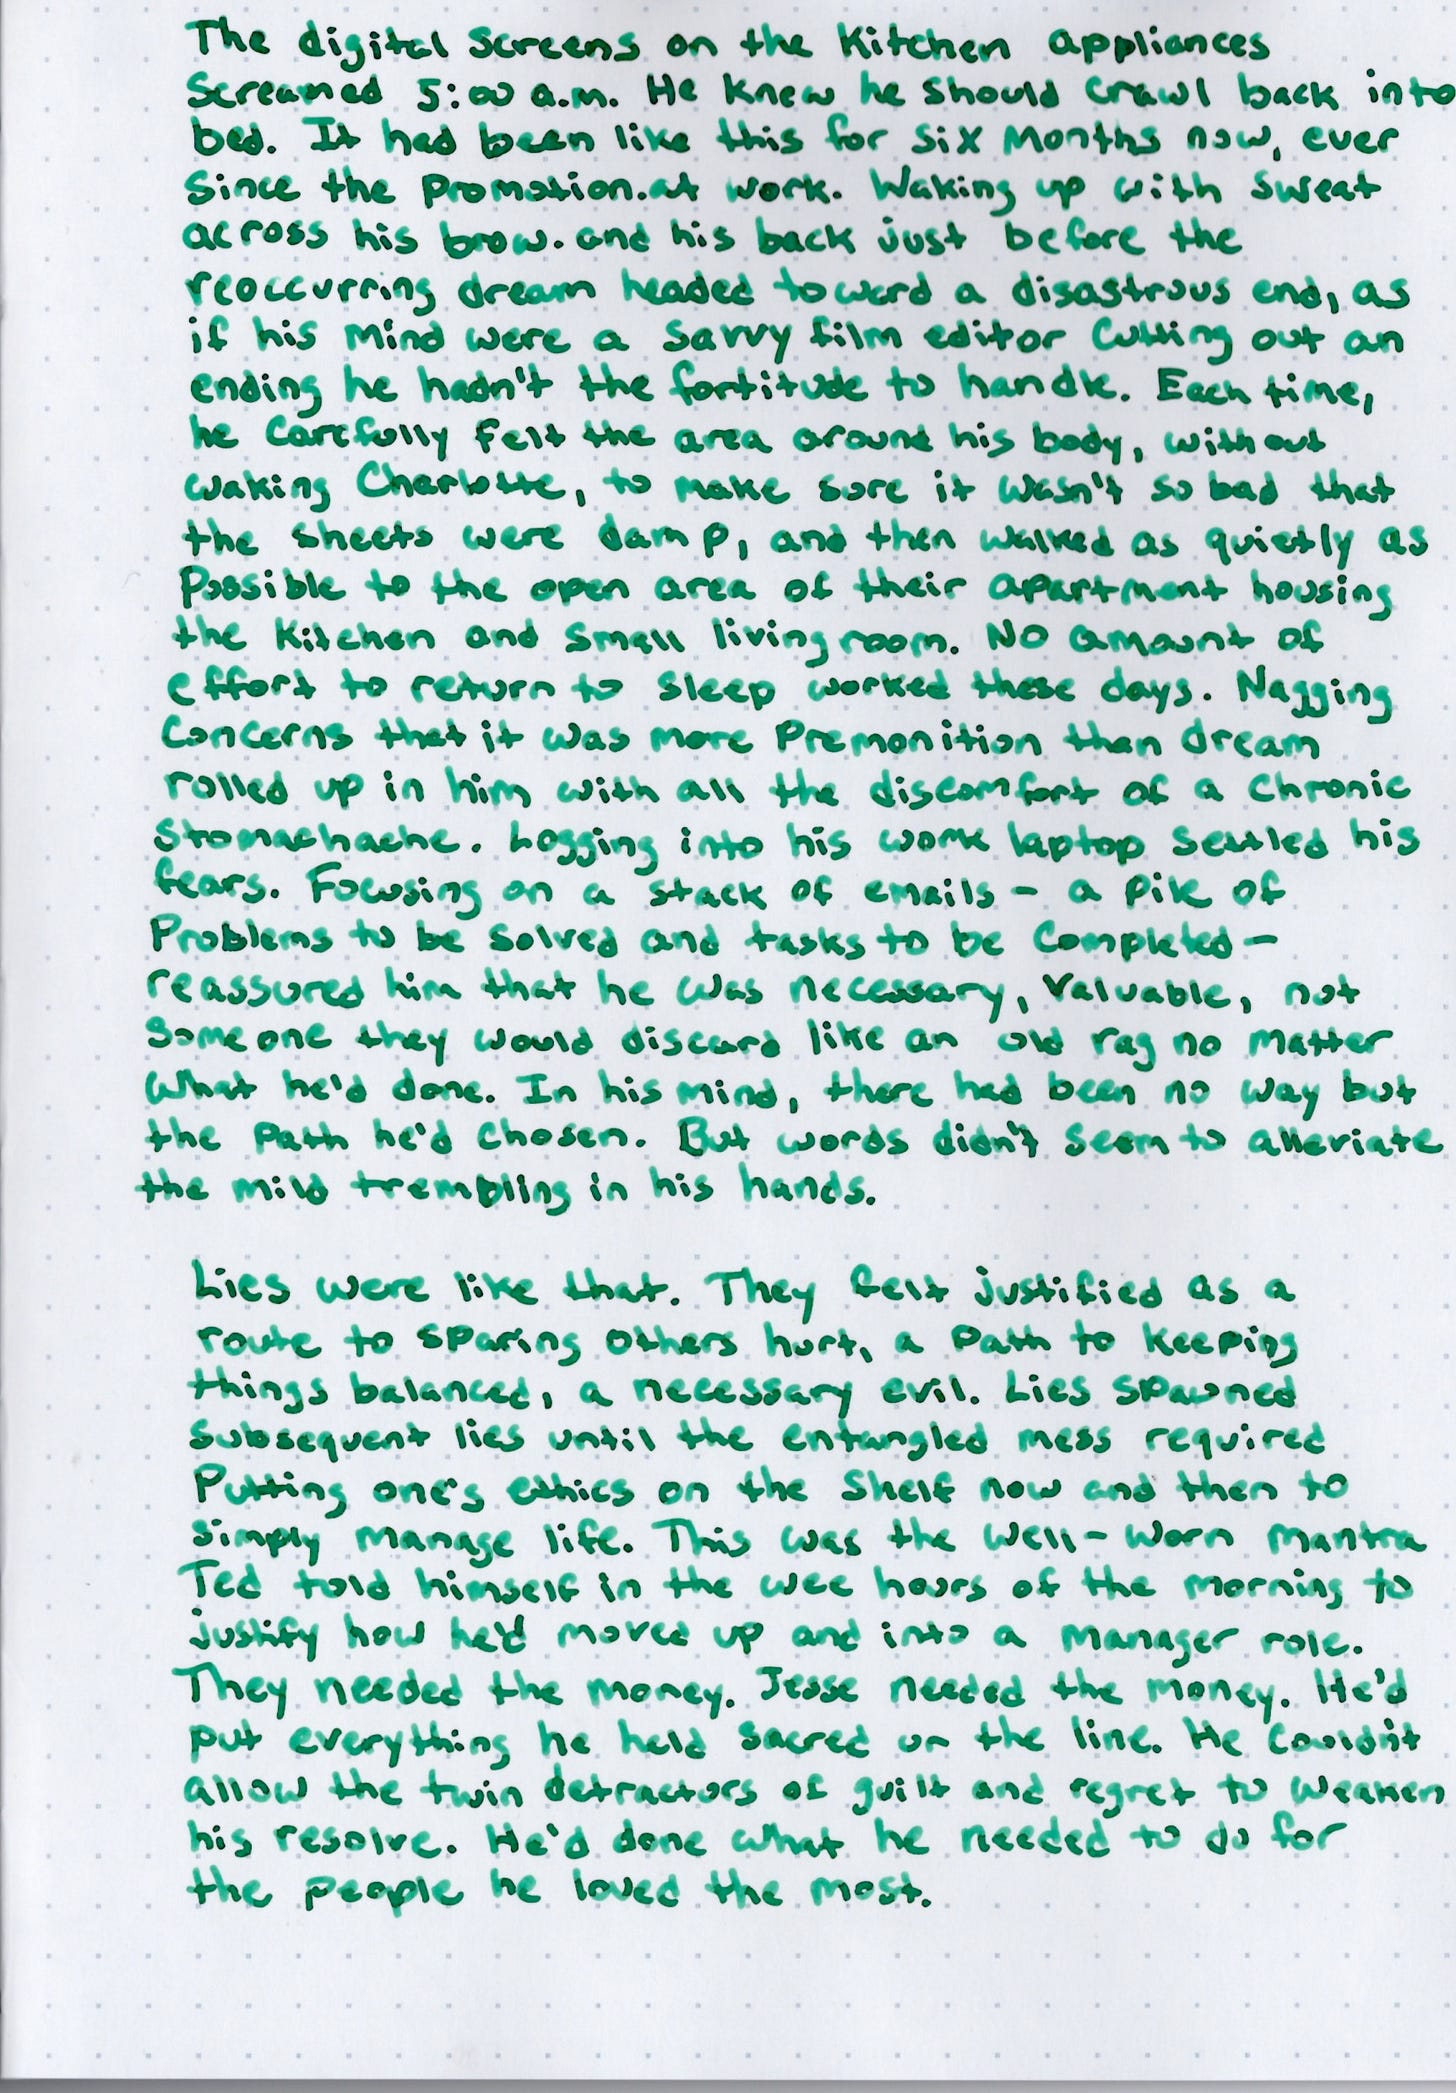 The digital screens on the kitchen appliances
screamed 5:00 a.m. He knew he should crawl back into
bed. It had been like this for six months now, ever
since the promotion at work. Waking up with sweat
across his brow and his back just before the
reoccurring dream headed toward a disastrous end, as
if his mind were a savvy film editor cutting out an
ending he hadn't the fortitude to handle. Each time,
he carefully felt the area around his body, without
waking Charlotte, to make sure it wasn't so bad that
the sheets were damp, and then walked as quietly as
possible to the open area of their apartment housing
the kitchen and small living room. No amount of
effort to return to sleep worked these days. Nagging
concerns that it was more premonition than dream
rolled up in him with all the discomfort of a chronic
stomachache. Logging into his work laptop settled his
fears. Focusing on a stack of emails - a pile of
problems to be solved and tasks to be completed -
reassured him that he was necessary, valuable, not
someone they would discard like an old rag no matter
what he'd done. In his mind, there had been no way but
the path he'd chosen. But words didn't seem to alleviate
the mild trempling in his hands.

Lies were like that. They felt justified as a
route to sparing others hurt, a path to keeping
things balanced, a necessary evil. Lies spawned
subsequent lies until the entangled mess required
putting one's ethics on the shelf now and then to
simply manage life. This was the well-worn mantra
Ted told himself in the wee hours of the morning to
justify how he'd moved up and into a manager role.
They needed the money. Jesse needed the money. He'd
put everything he held sacred on the line. He couldn't
allow the twin detractors of guilt and regret to weaken
his resolve. He'd done what he needed to do for
the people he loved the most.